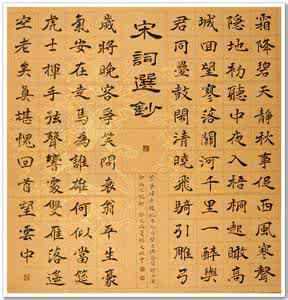 霜降碧天靜秋事促西風寒聲
隱地初聽中夜入梧桐起瞰高
城回望寥落關河千里一醉與
君同疊鼓鬧清曉飛騎引雕弓
宋詞選鈔
歲將晚客爭笑問衰翁平生豪
氣安在走馬為誰雄何似當筵
虎士揮手弦聲響處雙雁落遙
空老矣真堪愧回首望雲中